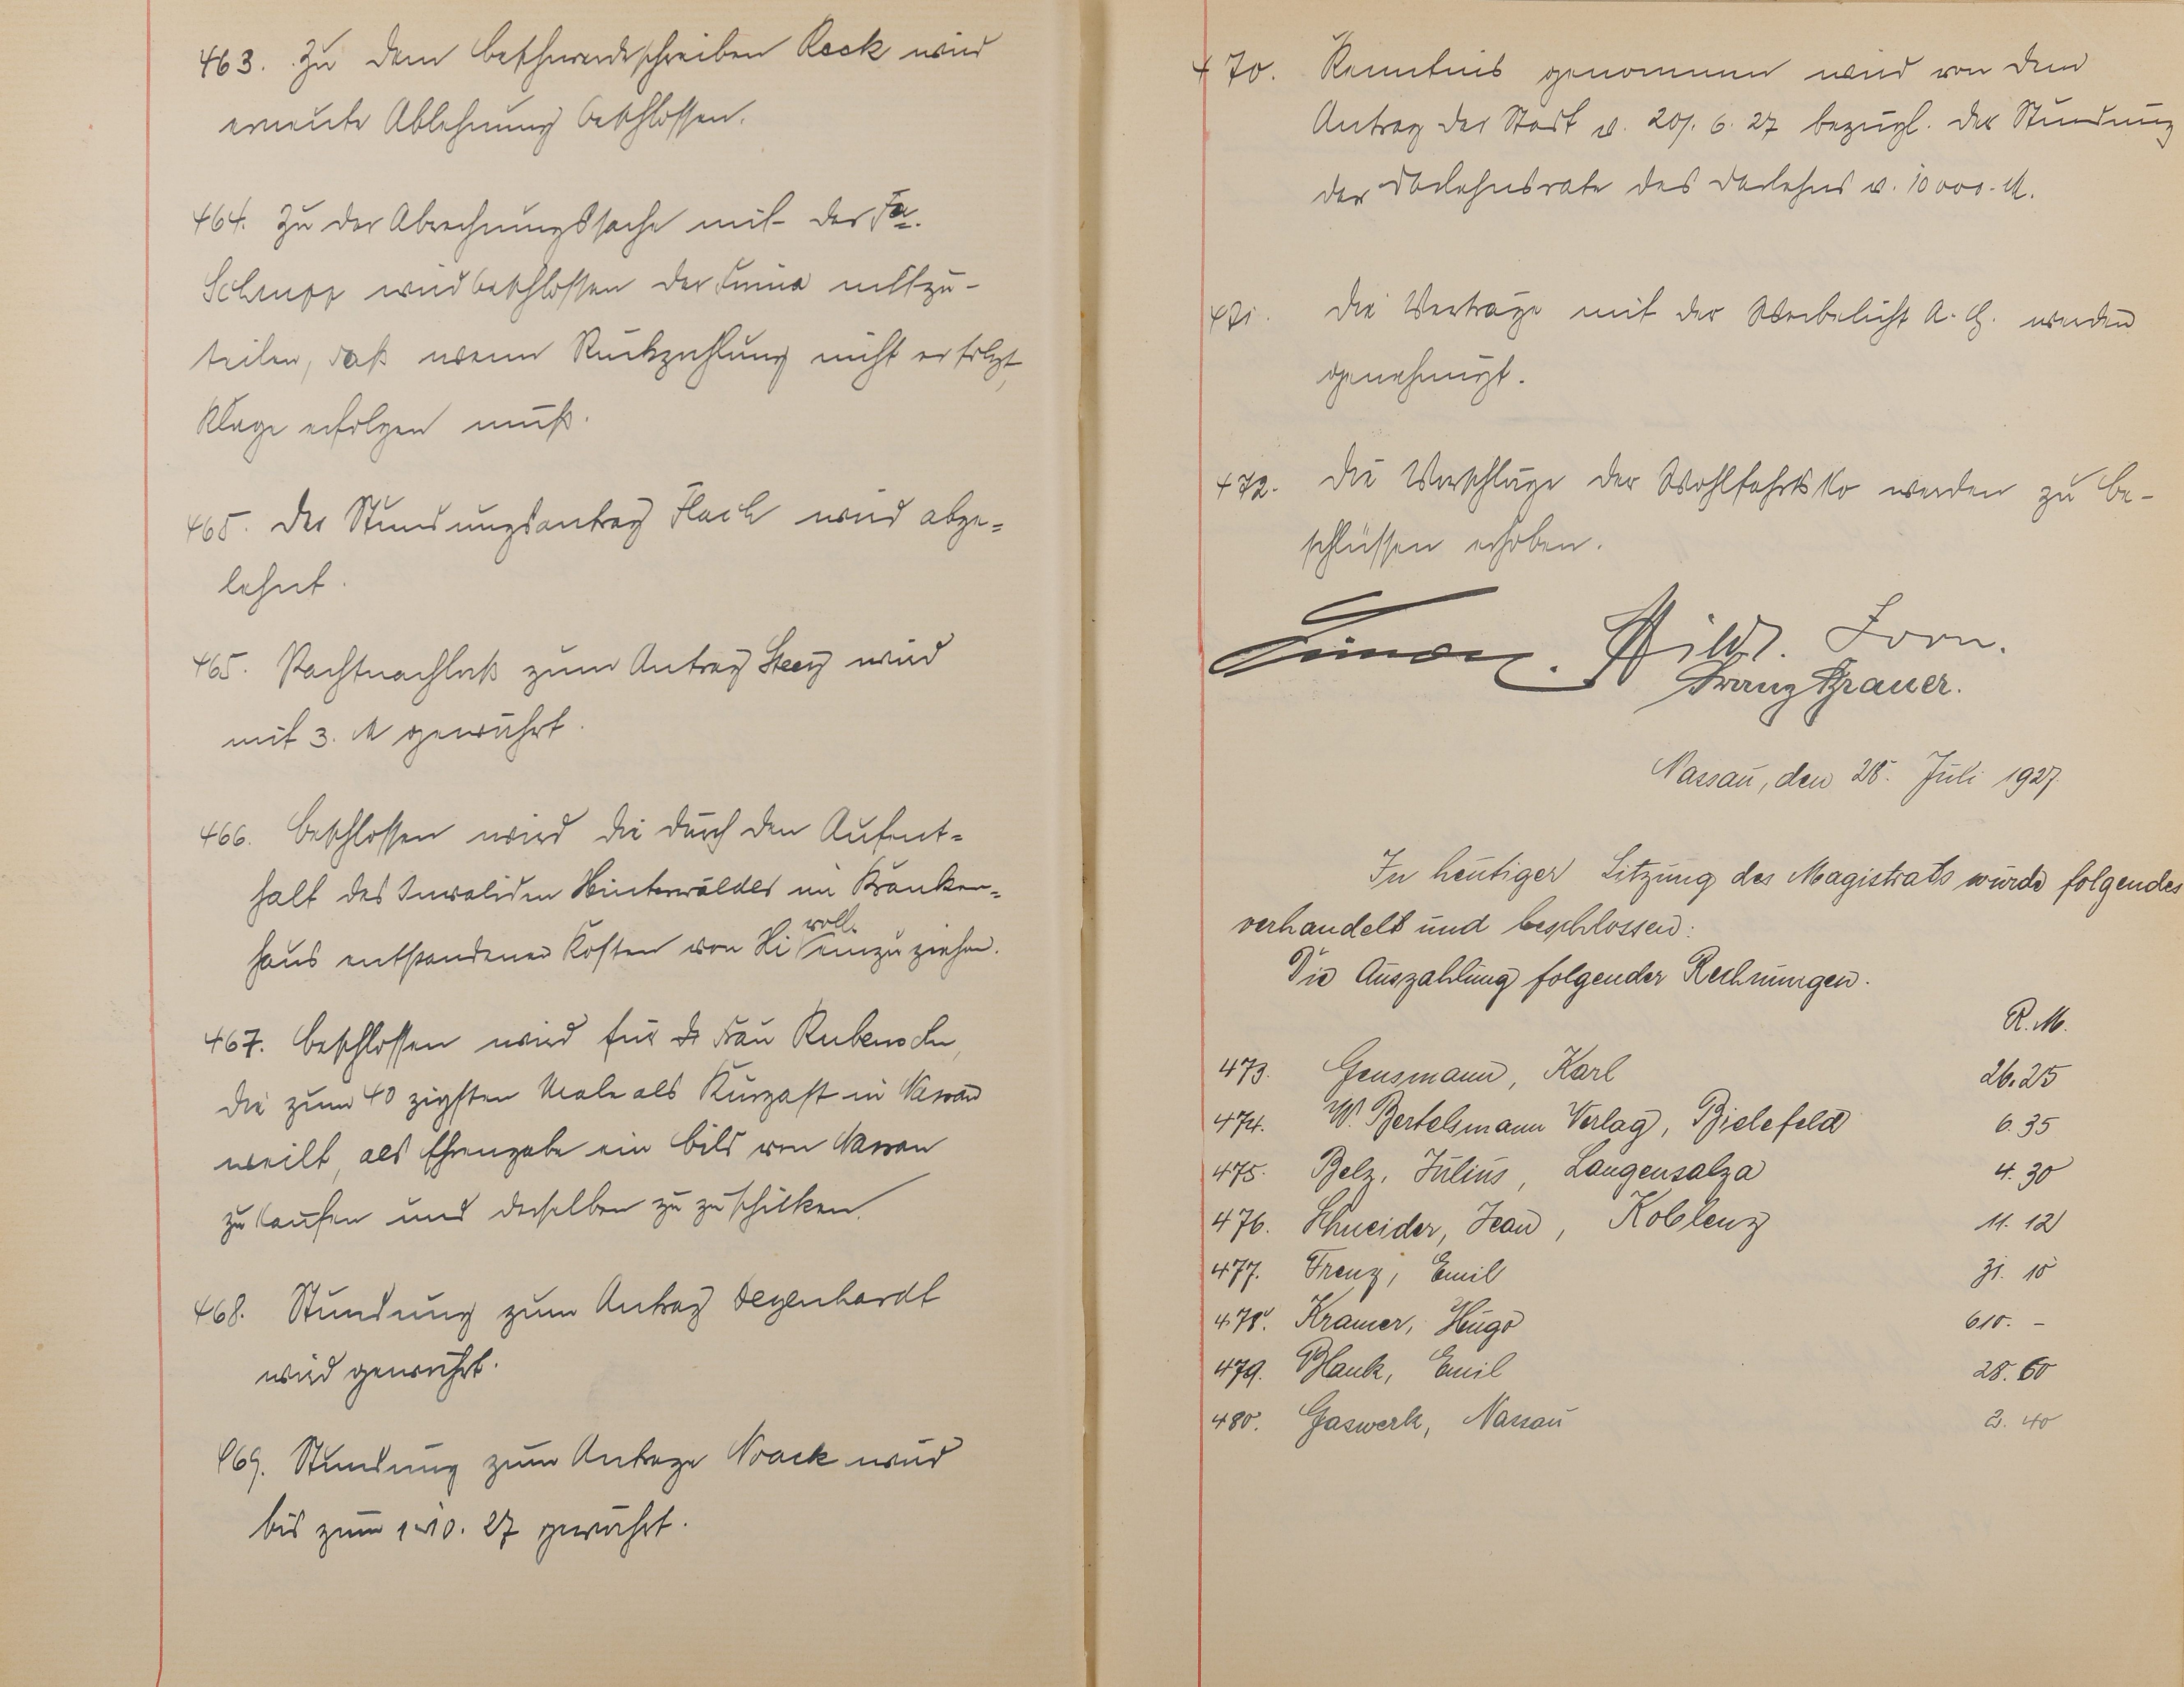 463. Zu dem Beschwerdeschreiben Reck wird
erneute Ablehnung beschlossen.
464. Zu der Abrechnungssache mit der Fa.
Schrupp wird beschlossen der Firma mitzu-
teilen, daß wenn Rückzahlung nicht erfolgt,
Klage erfolgen muß.
465. Der Stundungsantrag Flach wird abge=
lehnt.
465. Pachtnachlaß zum Antrag wird
mit 3. M gewährt.
466. Beschlossen wird die durch den Aufent=
halt des Invaliden Hinterwälder im Kranken=
haus entstandenen Kosten von Hi voll. einzuziehen.
467. Beschlossen wird für Frau
die zum 40 zigsten Male als Kurgast in Nassau
weilt, als Ehrengabe ein Bild von Nassau
zu kaufen und derselben zu zuschicken.
468. Stundung zum Antrag Degenhardt
wird gewährt.
469. Stundung zum Antrage Noack wird
bis zum 1.10. 27 gewährt.
470. Kenntnis genommen wird von dem
Antrag der Stadt v. 6. 27 bezügl. der Stundung
der Darlehnsrate des Darlehns v. 10000.M.
471. Die Verträge mit der Werbelicht A.G. werden
genehmigt.
472. Die Vorschläge der Wohlfahrtsko werden zu Be-
schlüssen erhoben.
Franz Brauer.
Nassau, den 28. Juli 1927.
In heutiger Sitzung des Magistrats wurde folgendes
verhandelt und beschlossen:
Die Auszahlung folgender Rechnungen.
R.M.
473. Gensmann, Karl 26.25
474. W. Bertelsmann Verlag, Bielefeld 6.35
475. Belz, Julius, Langensalza 4.30
476. Schneider, Jean, Koblenz 11.12
477. Trenz, Emil 31.10
478. Kramer, Hugo 610.-
479. Blank, Emil 28.60
480. Gaswerk, Nassau 2.40